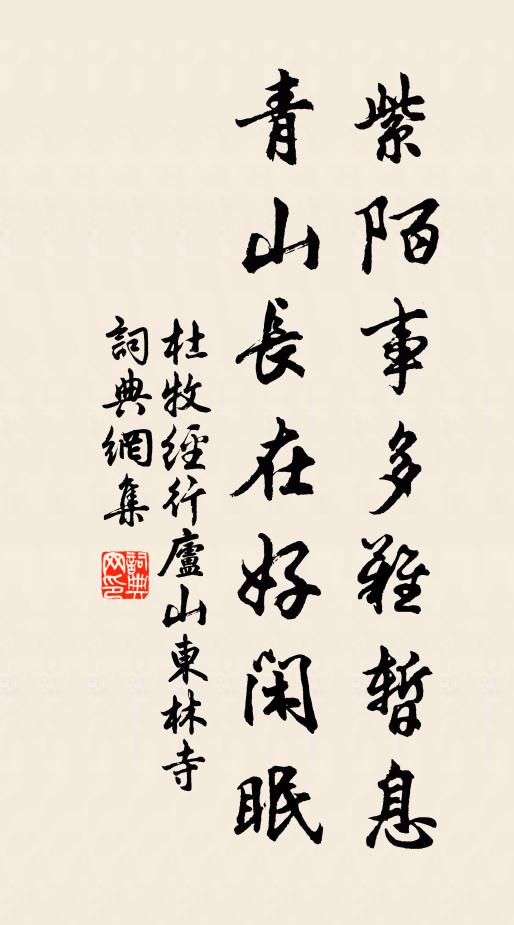 紫陌事多難暫息
青山長在好閑眠
杜牧經行廬山東林寺
詞典網集
詞典網印